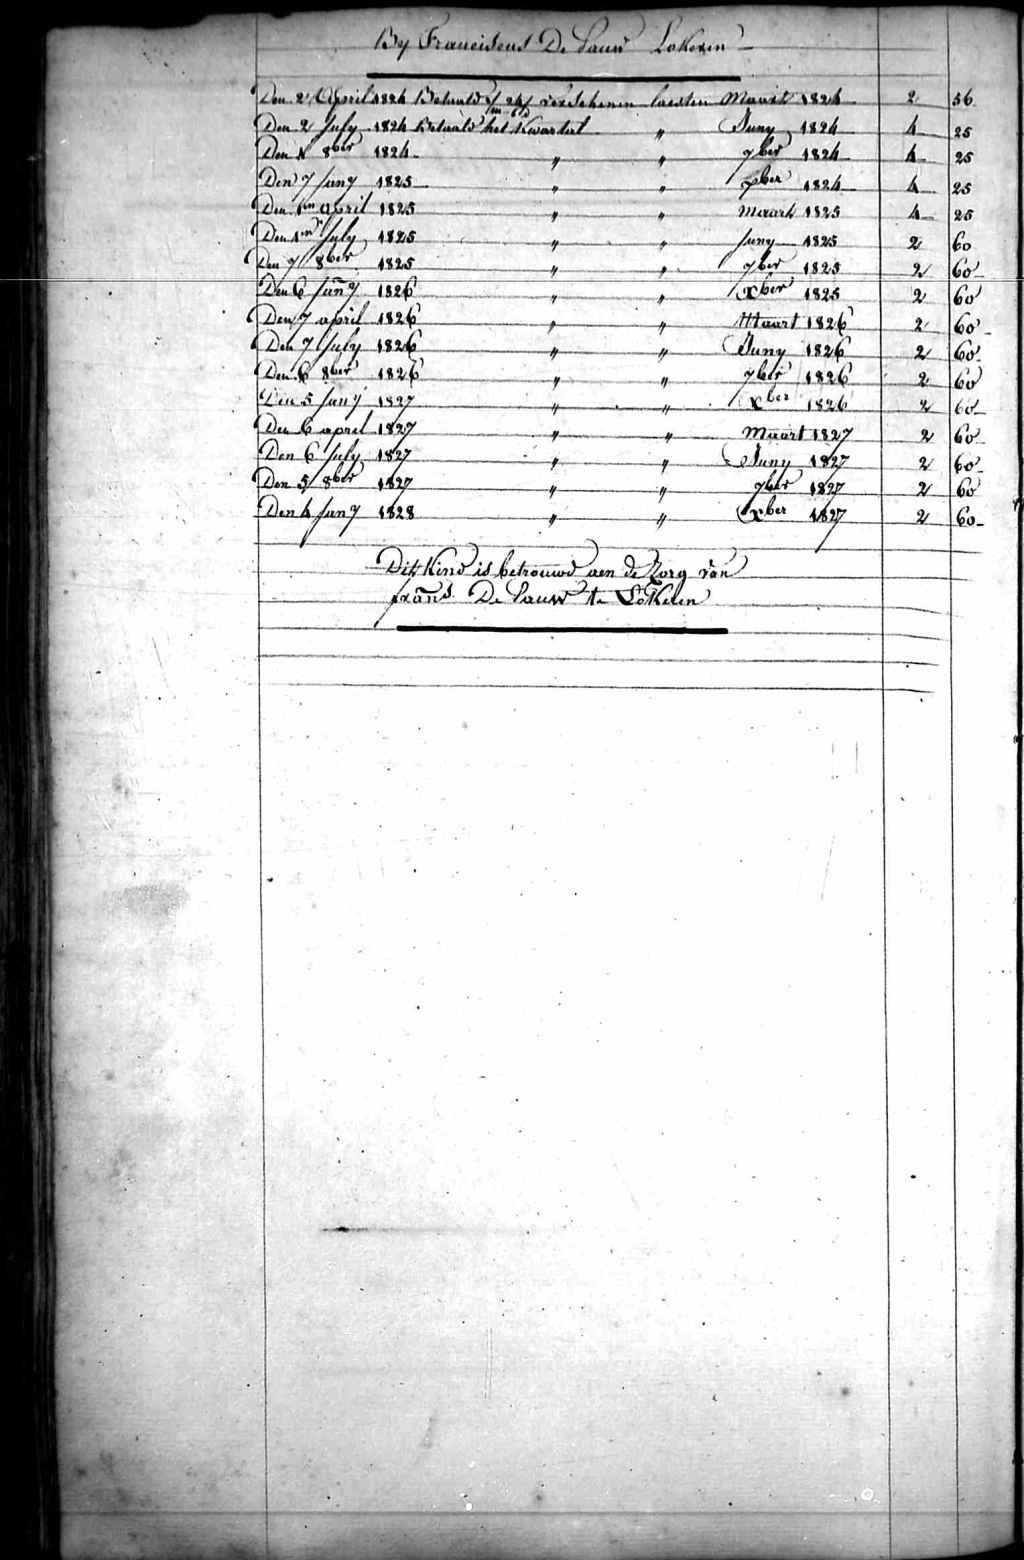 By Franciscus De Pauw Lokeren
Den 2 April 1824 Betaald verschenen laesten Maart 1824 2 56
Den 2 July 1824 Betaald het Kwartal " Juny 1824 4 25
Den 1 8ber 1824 " " 7ber 1824 4 25
Den 7 Jany 1825 " " xber 1824 4 25
Den 1en april 1825 " " Maart 1825 4 25
Den 1en July 1825 " " Juny 1825 2 60
Den 7 8ber 1825 " " 7ber 1825 2 60
Den 6 Jany 1826 " " xber 1825 2 60
Den 7 april 1826 " " Maart 1826 2 60
Den 7 July 1826 " " Juny 1826 2 60
Den 6 8ber 1826 " " 7ber 1826 2 60
Den 5 Jany 1827 " " xber 1826 2 60
Den 6 april 1827 " " Maart 1827 2 60
Den 6 July 1827 " " Juny 1827 2 60
Den 5 8ber 1827 " " 7ber 1827 2 60
Den 4 Jany 1828 " " xber 1827 2 60
Dit Kind is betrouwd aen de Zorg van
frans De Pauw te Lokeren